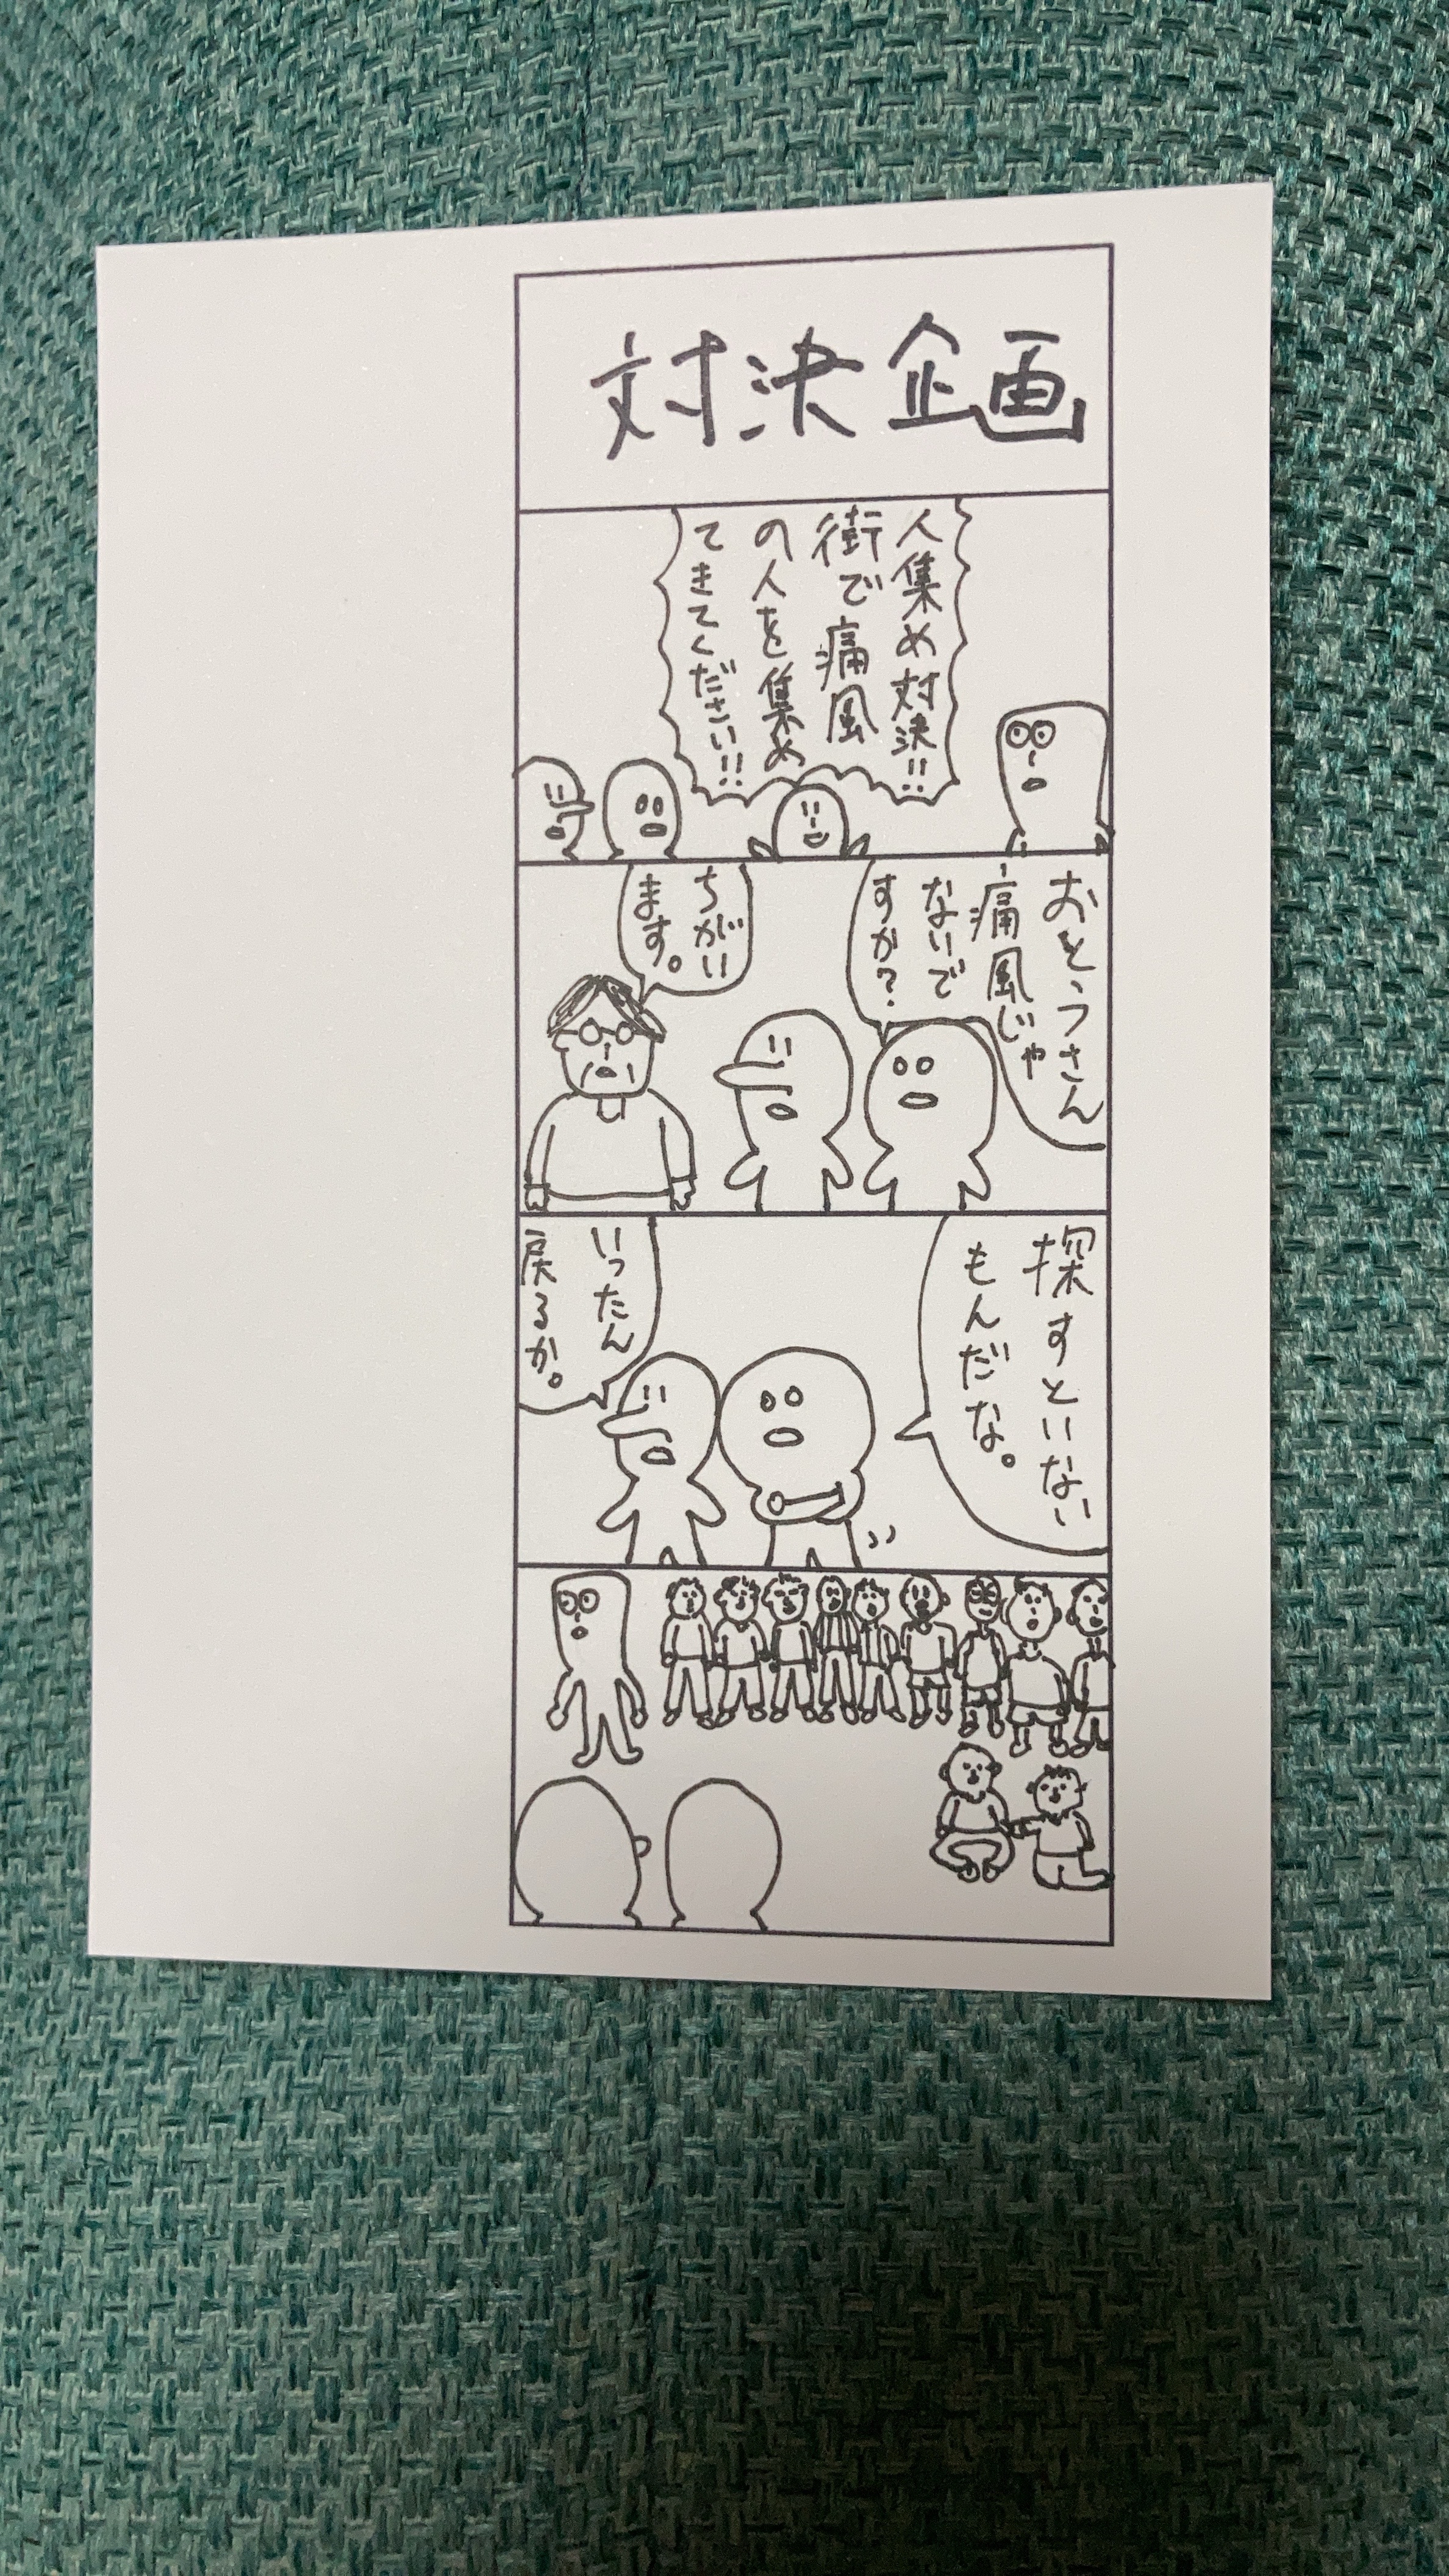 対決企画
人集め対決!!
街で痛風
の人を集め
てきてください!!
おとうさん
痛風じゃ
ないで
すか?
ちがい
ます。
探すといない
もんだな。
いったん
戻るか。